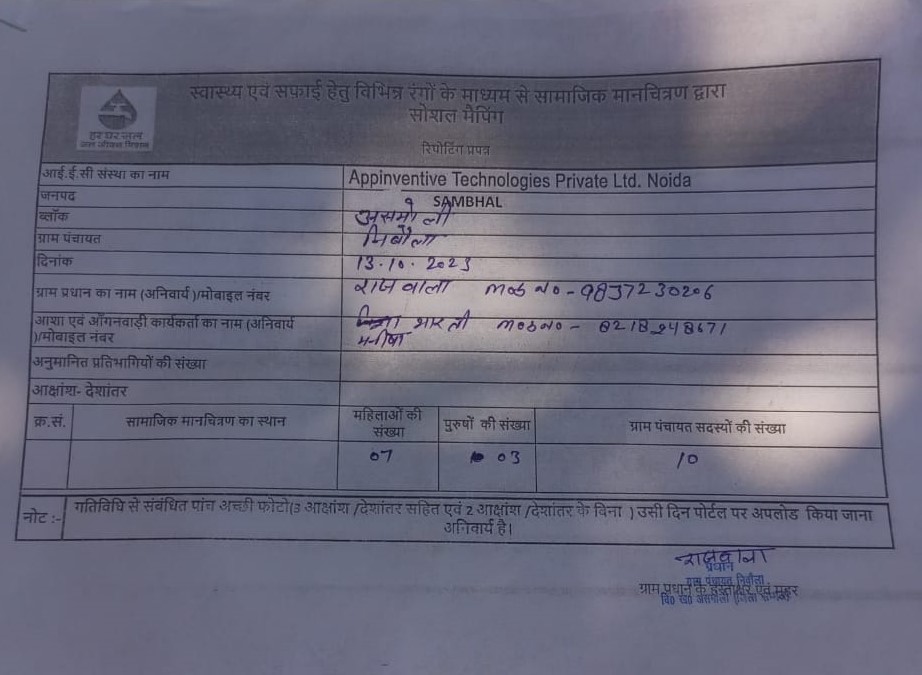 स्वास्थ्य एवं सफाई हेतु विभिन्न रंगों के माध्यम से सामाजिक मानचित्रण द्वारा
सोशल मैपिंग
हर घर जल
जल जीवन मिशन
रिपोर्टिंग प्रपत्र
आई.ई.सी संस्था का नाम Appinventive Technologies Private Ltd. Noida
जनपद SAMBHAL
ब्लॉक असमोली
ग्राम पंचायत
दिनांक 13.10.2023
ग्राम प्रधान का नाम (अनिवार्य )/मोबाइल नंबर राजवाला mob no - 9837230206
आशा एवं आँगनवाड़ी कार्यकर्ता का नाम (अनिवार्य भारती mob no -
)/मोबाइल नंबर मनीषा
अनुमानित प्रतिभागियों की संख्या
आक्षांश- देशांतर
क्र.सं. सामाजिक मानचित्रण का स्थान महिलाओं की संख्या पुरुषों की संख्या ग्राम पंचायत सदस्यों की संख्या
07 03 10
नोट :- गतिविधि से संबंधित पांच अच्छी फोटो(3 आक्षांश /देशांतर सहित एवं 2 आक्षांश /देशांतर के बिना ) उसी दिन पोर्टल पर अपलोड किया जाना
अनिवार्य है।
राजवाला
प्रधान
ग्राम प्रधान के हस्ताक्षर एवं मुहर